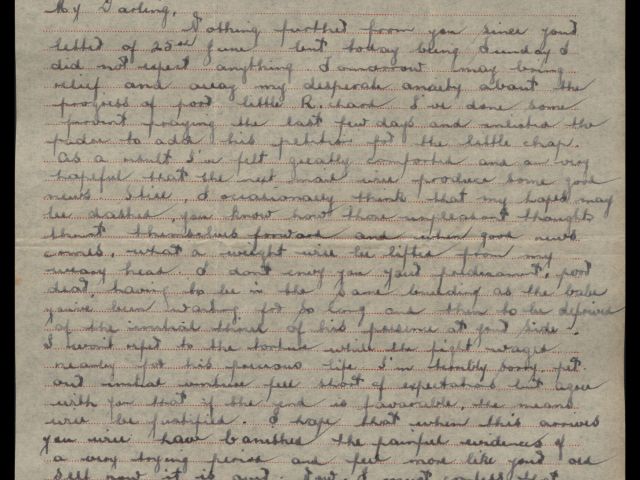 My Darling,
Nothing further from you since your
letter of 25th June but today being Sunday I
did not expect anything. Tomorrow may bring
relief and allay my desperate anxiety about the
progress of poor little Richard. I've done some
fervent praying the last few days and enlisted the
padre to add his petition for the little chap.
As a result I've felt greatly comforted and am very
hopeful that the next mail will produce some good
news. Still, I occasionally think that my hopes may
be dashed, you know how those unpleasant thoughts
thrust themselves forward and when good news
comes, what a weight will be lifted from my
weary head. I don't envy you your predicament, poor
dear, having to be in the same building as the babe
you've been wanting for so long and then to be deprived
of the initial thrill of his presence at your side.
I won't refer to the torture while the fight wages
nearby for his precious life. I'm terribly sorry, pet,
our initial venture fell short of expectations but agree
with you that if the end is favourable, the means
will be justified. I hope that when this arrives
you will have banished the painful evidences of
a very trying period and feel more like your old
self now it is over. I must confess that